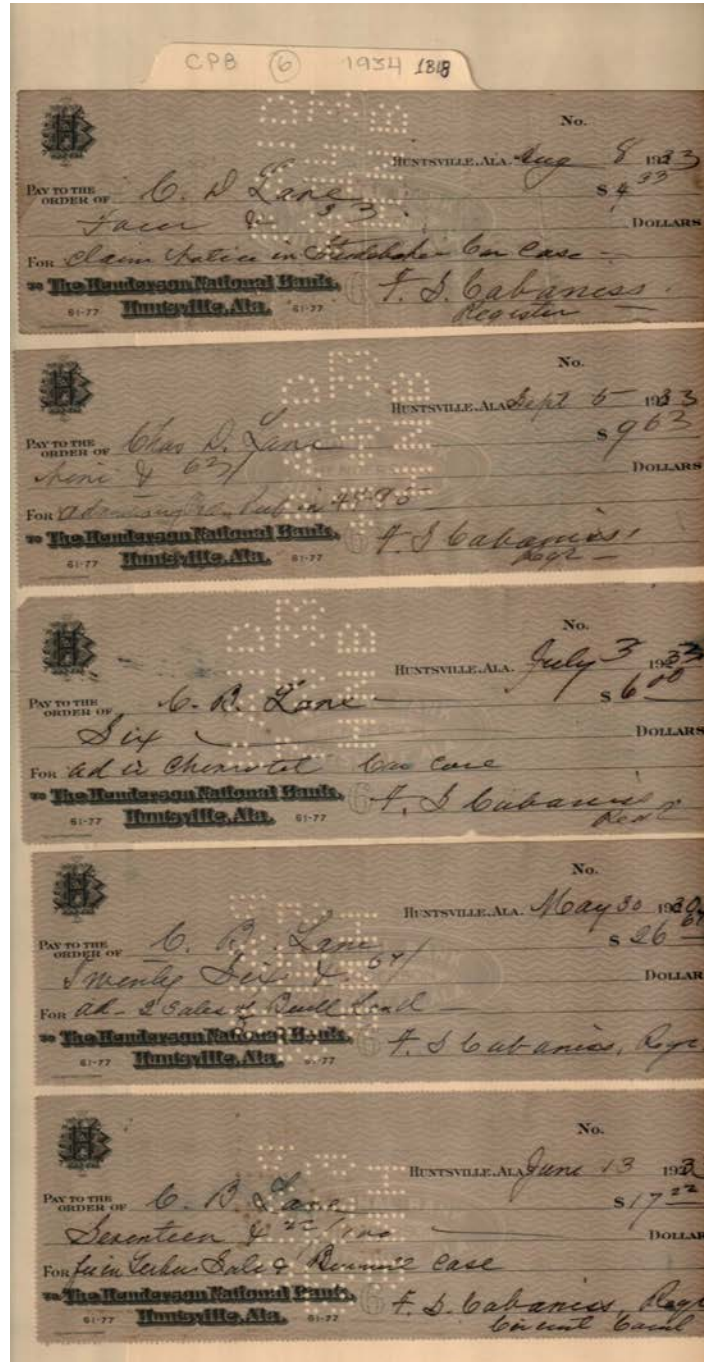 CPB 6 1934 1818
No.
HUNTSVILLE, ALA. Aug 8 1933
PAY TO THE ORDER OF C. D Lane $ 4 33
Four & 33 DOLLARS
FOR Claim Notice in Studebaker Car Case
TO The Henderson National Bank,
Huntsville, Ala.
61-77 61-77
F. S. Cabaniss
Register
No.
HUNTSVILLE, ALA. Sept 5 1933
PAY TO THE ORDER OF Chas D. Lane $ 9 63
& 63/ DOLLARS
FOR Pub in
TO The Henderson National Bank,
Huntsville, Ala.
61-77 61-77
F. S Cabaniss
Regr
No.
HUNTSVILLE, ALA. July 3 1933
PAY TO THE ORDER OF C. B. Lane $ 6 00
Six DOLLARS
FOR ad in Car Case
TO The Henderson National Bank,
Huntsville, Ala.
61-77 61-77
F. S Cabaniss
Regr
No.
HUNTSVILLE, ALA. May 30 1930
PAY TO THE ORDER OF C. B. Lane $ 26 67
Twenty Six & 67/ DOLLAR
FOR ad - 2 Sales of Land
TO The Henderson National Bank,
Huntsville, Ala.
61-77 61-77
F. S Cabaniss, Regr
No.
HUNTSVILLE, ALA. June 13 193
PAY TO THE ORDER OF C. B Lane $ 17 22
Seventeen & 22/100 DOLLAR
FOR Sale & Case
TO The Henderson National Bank,
Huntsville, Ala.
61-77 61-77
F. S. Cabaniss, Regr
Circuit Court